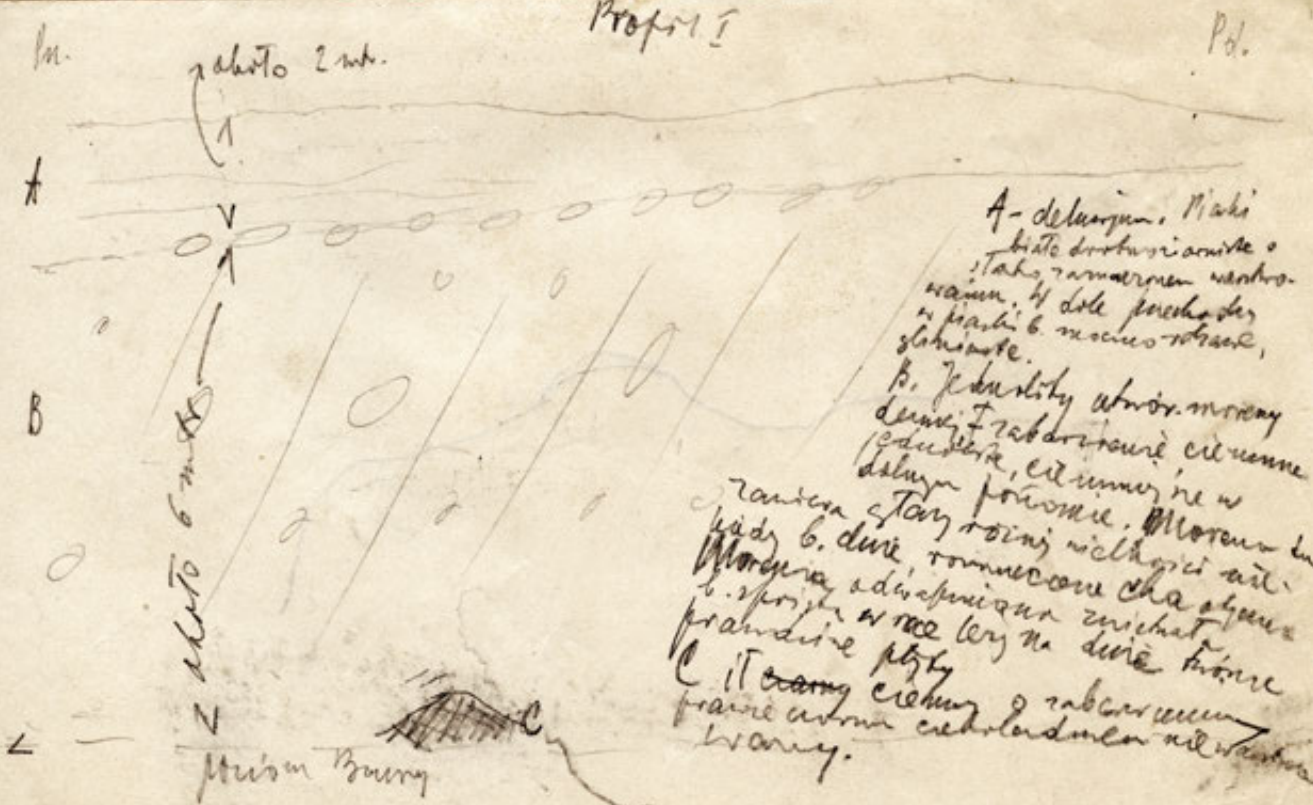 Profil I
Pn.
Pd.
około 2 mtr.
A
B
około 6 mtr.
C
poziom Bzury
A - deluvjum. Piaski
białe drobnoziarniste o
słabo zaznaczonem warstwo-
waniu. W dole przechodzą
w piaski b. mocno rdzawe,
gliniaste.
B. Jednolity utwór moreny
dennej I zabarwienie ciemne
jednolite, ciemniejsze w
dolnym poziomie. Morena
zawiera głazy różnej wielkości nie-
kiedy b. duże, rozrzucone
Morena odwapniona
b. w leży na dnie tworząc
prawdziwe płyty
C ił czarny ciemny o zabarwieniu
prawie czarno czekoladowem niewarstwo-
wany.